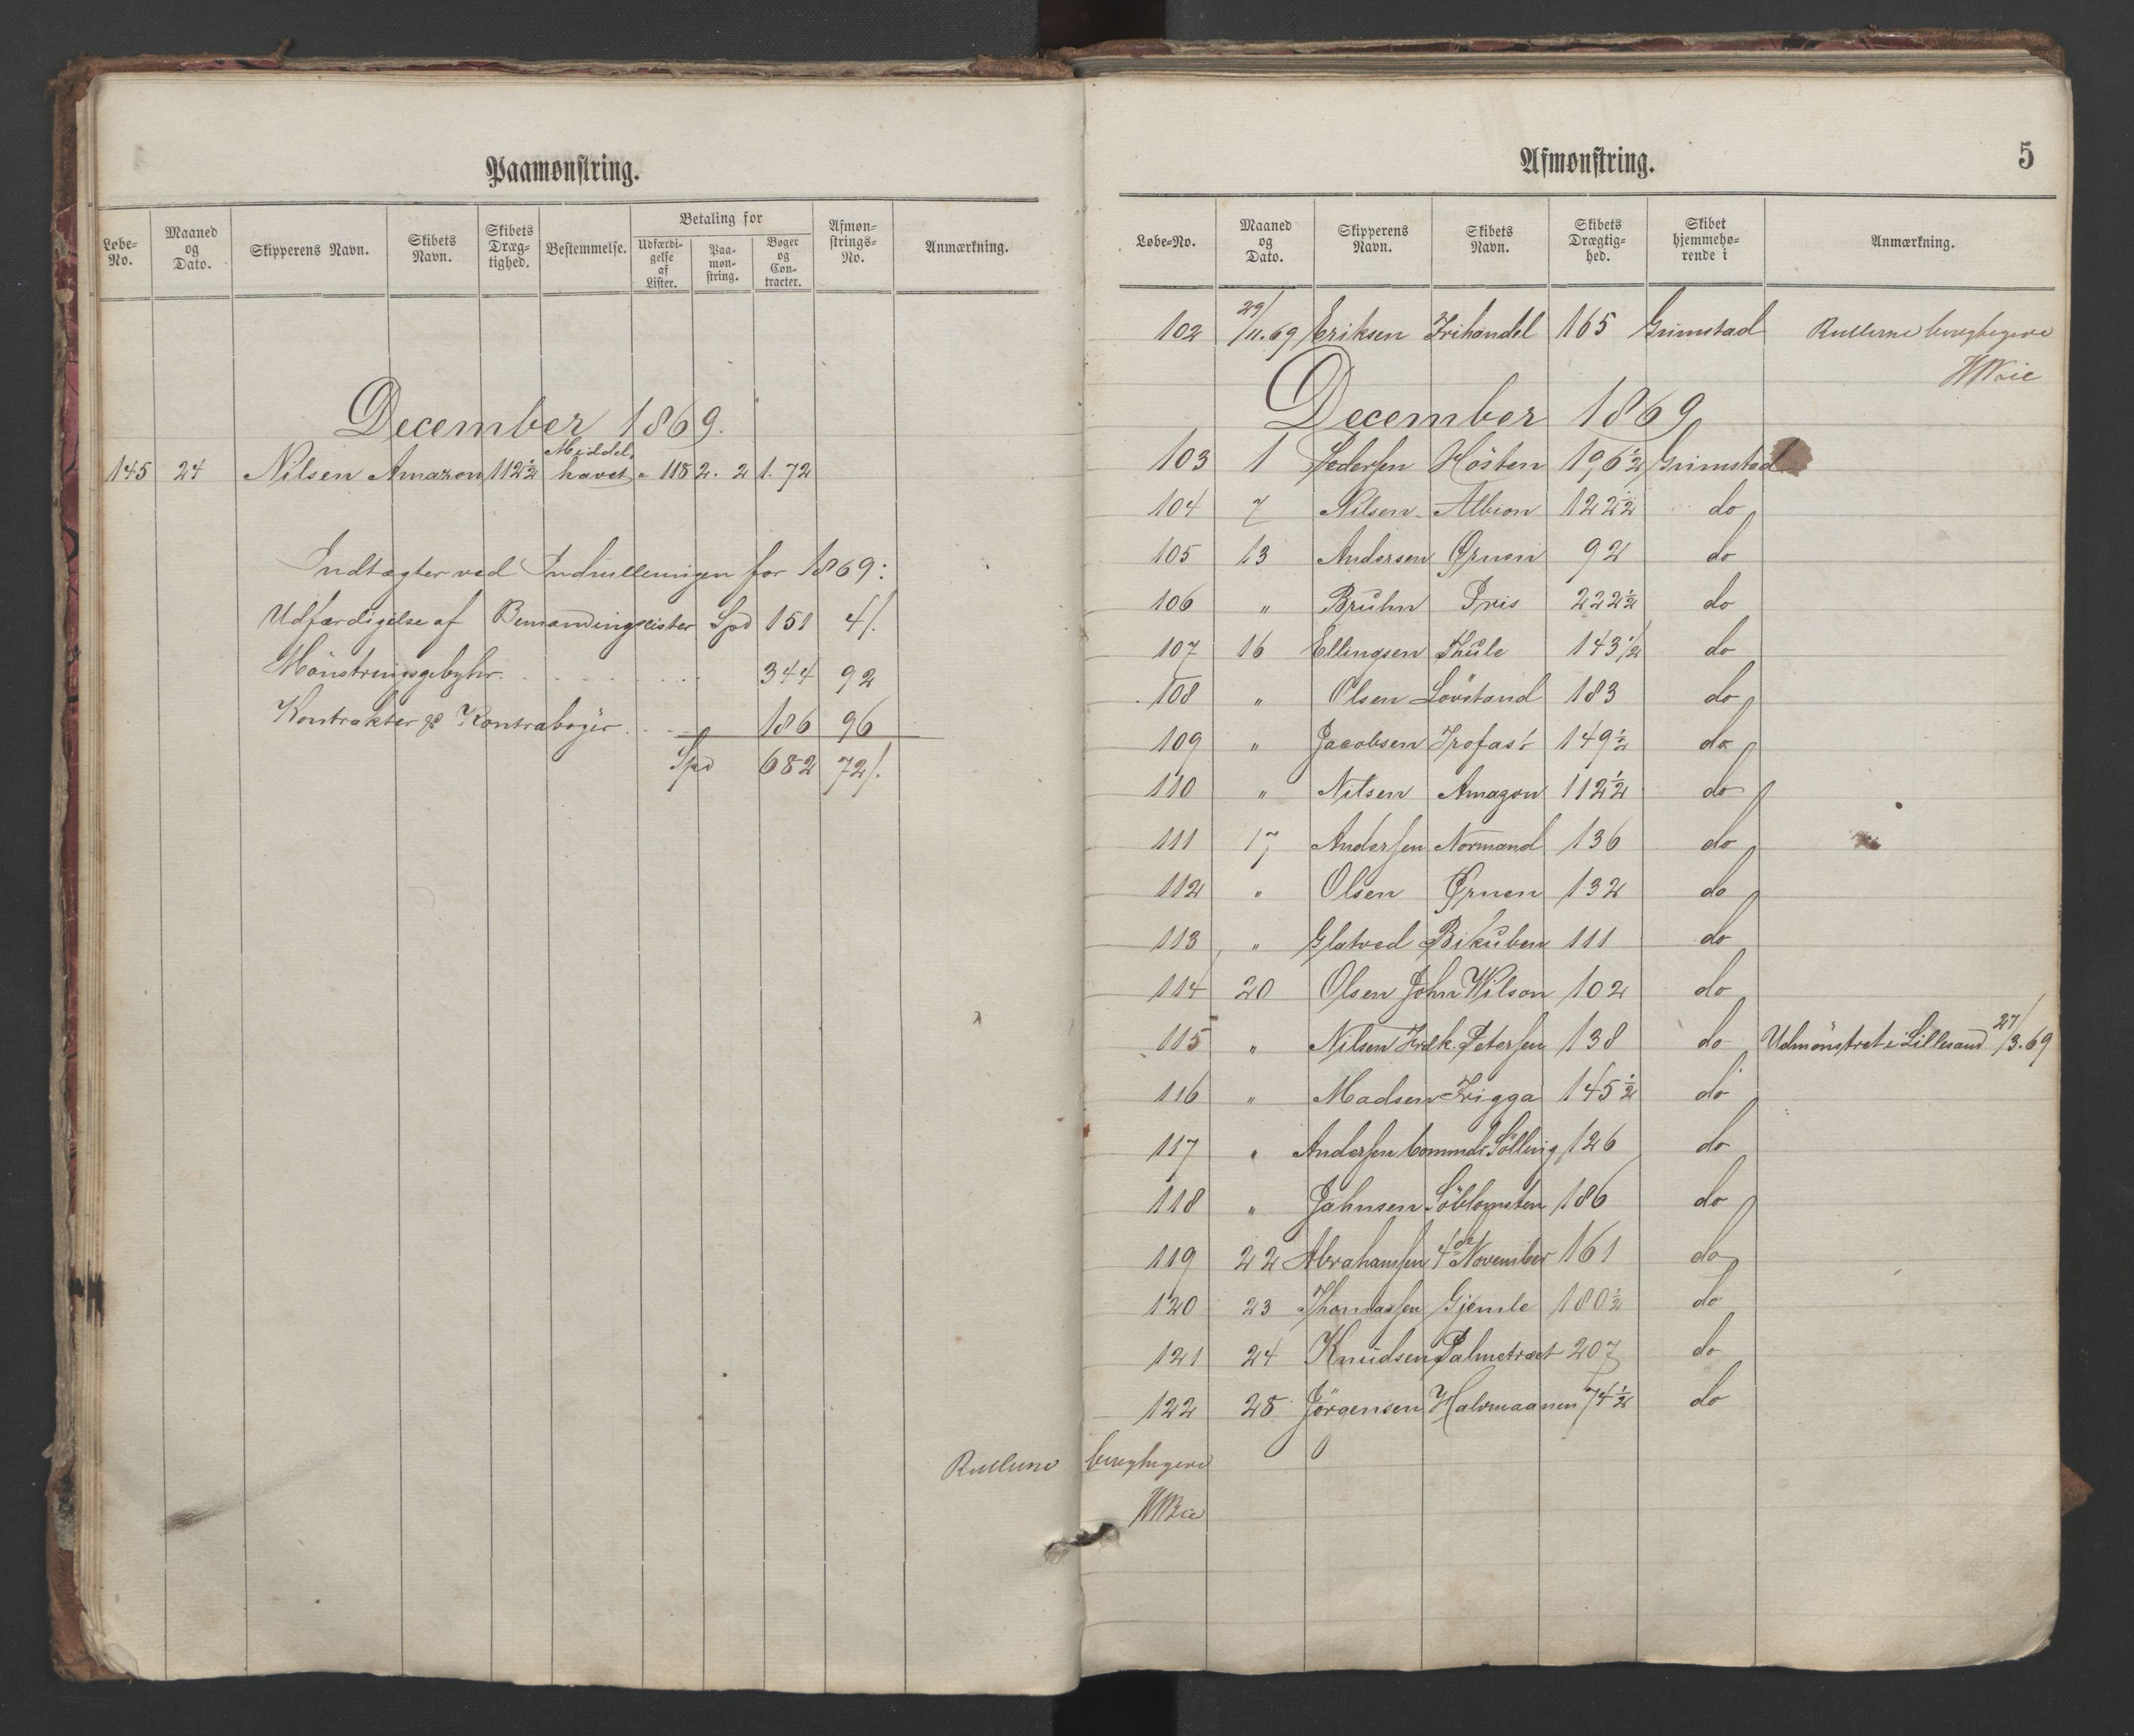 Paamønstring.
Løbe-No. Maaned og Dato. Skipperens Navn. Skibets Navn. Skibets Dræg-tighed. Bestemmelse. Betaling for Udfærdi-gelse af Lister. Paa-møn-string. Bøger og Con-tracter. Afmøn-strings-No. Anmærkning.
December 1869.
145 24 Nilsen Amazon 112½ Middel-havet " 118 2. 2 1. 72
Indtægter ved Indrulleringen for 1869:
Udfærdigelse af Bemandingslister Spd 151 4/.
Mönstringsgebyhr. 344 92
Kontrakter & Kontraboger. 186 96
Spd 682 72/.
Afmønstring. 5
Løbe-No. Maaned og Dato. Skipperens Navn. Skibets Navn. Skibets Drægtig-hed. Skibet hjemmehø-rende i Anmærkning.
102 29/11.69 Eriksen Frihandel 165 Grimstad Rullerne
December 1869
103 1 Pedersen Hösten 196½ Grimstad
104 7 Nilsen Albion 122½ do
105 13 Andersen Ørnen 92 do
106 " Bruhn Iris 222½ do
107 16 Ellingsen Thule 143½ do
108 " Olsen Lövstand 183 do
109 " Jacobsen Trofast 149½ do
110 " Nilsen Amazon 112½ do
111 17 Andersen Normand 136 do
112 " Olsen Ørnen 132 do
113 " Glatved Bikuben 111 do
114 20 Olsen John Wilson 102 do
115 " Nilsen Fredk. Petersen 138 do Udmönstret i Lillesand 27/3.69
116 " Madsen Frigga 145½ do
117 " Andersen Commdr Sölling 126 do
118 " Jahnsen Söblomsten 186 do
119 22 Abrahamsen 4de November 161 do
120 23 Thomassen Gjemle 180½ do
121 24 Knudsen Palmetræet 207 do
122 28 Jörgensen Halvmaanen 74½ do